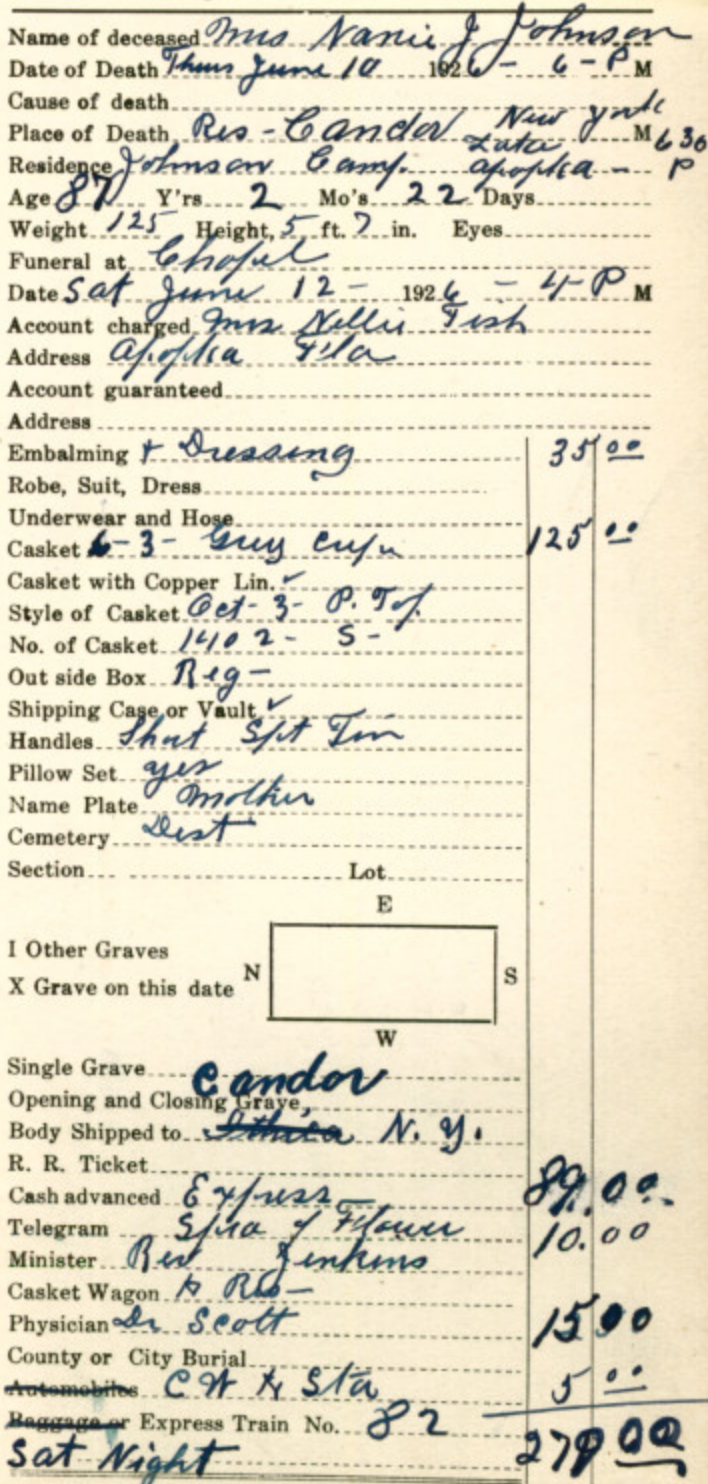 Name of deceased Mrs Nanie J Johnson
Date of Death Thurs June 10 1926 - 6 - P M
Cause of death
Place of Death Res - Candor New York M 630
Residence Johnson Camp. Apopka - P
Age 87 Y'rs 2 Mo's 22 Days
Weight 125 Height, 5 ft. 7 in. Eyes
Funeral at Chapel
Date Sat June 12 - 1926 - 4 - P M
Account charged Mrs Nellie Fish
Address Apopka Fla
Account guaranteed
Address
Embalming + Dressing 35 00
Robe, Suit, Dress
Underwear and Hose
Casket 6-3- Grey 125 00
Casket with Copper Lin. ✓
Style of Casket Oct - 3 - P. Top
No. of Casket 1402 - S -
Out side Box Reg -
Shipping Case or Vault ✓
Handles Short
Pillow Set yes
Name Plate Mother
Cemetery
Section Lot
E
I Other Graves
N S
X Grave on this date
W
Single Grave
Candor
Opening and Closing Grave,
Body Shipped to Ithica N. Y.
R. R. Ticket
Cash advanced Express 89.00
Telegram Flower 10.00
Minister Rev Jenkins
Casket Wagon to Res -
Physician Dr Scott 15 00
County or City Burial
Automobiles C W to Sta 5 00
Baggage or Express Train No. 82
Sat Night 279 00